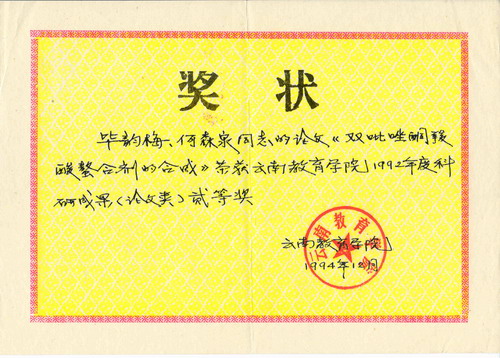 奖状
毕韵梅、何森泉同志的论文《双吡唑酮羧
酸螯合剂的合成》荣获云南教育学院1992年度科
研成果(论文类)贰等奖
云南教育学院
1994年12月
云南教育学院